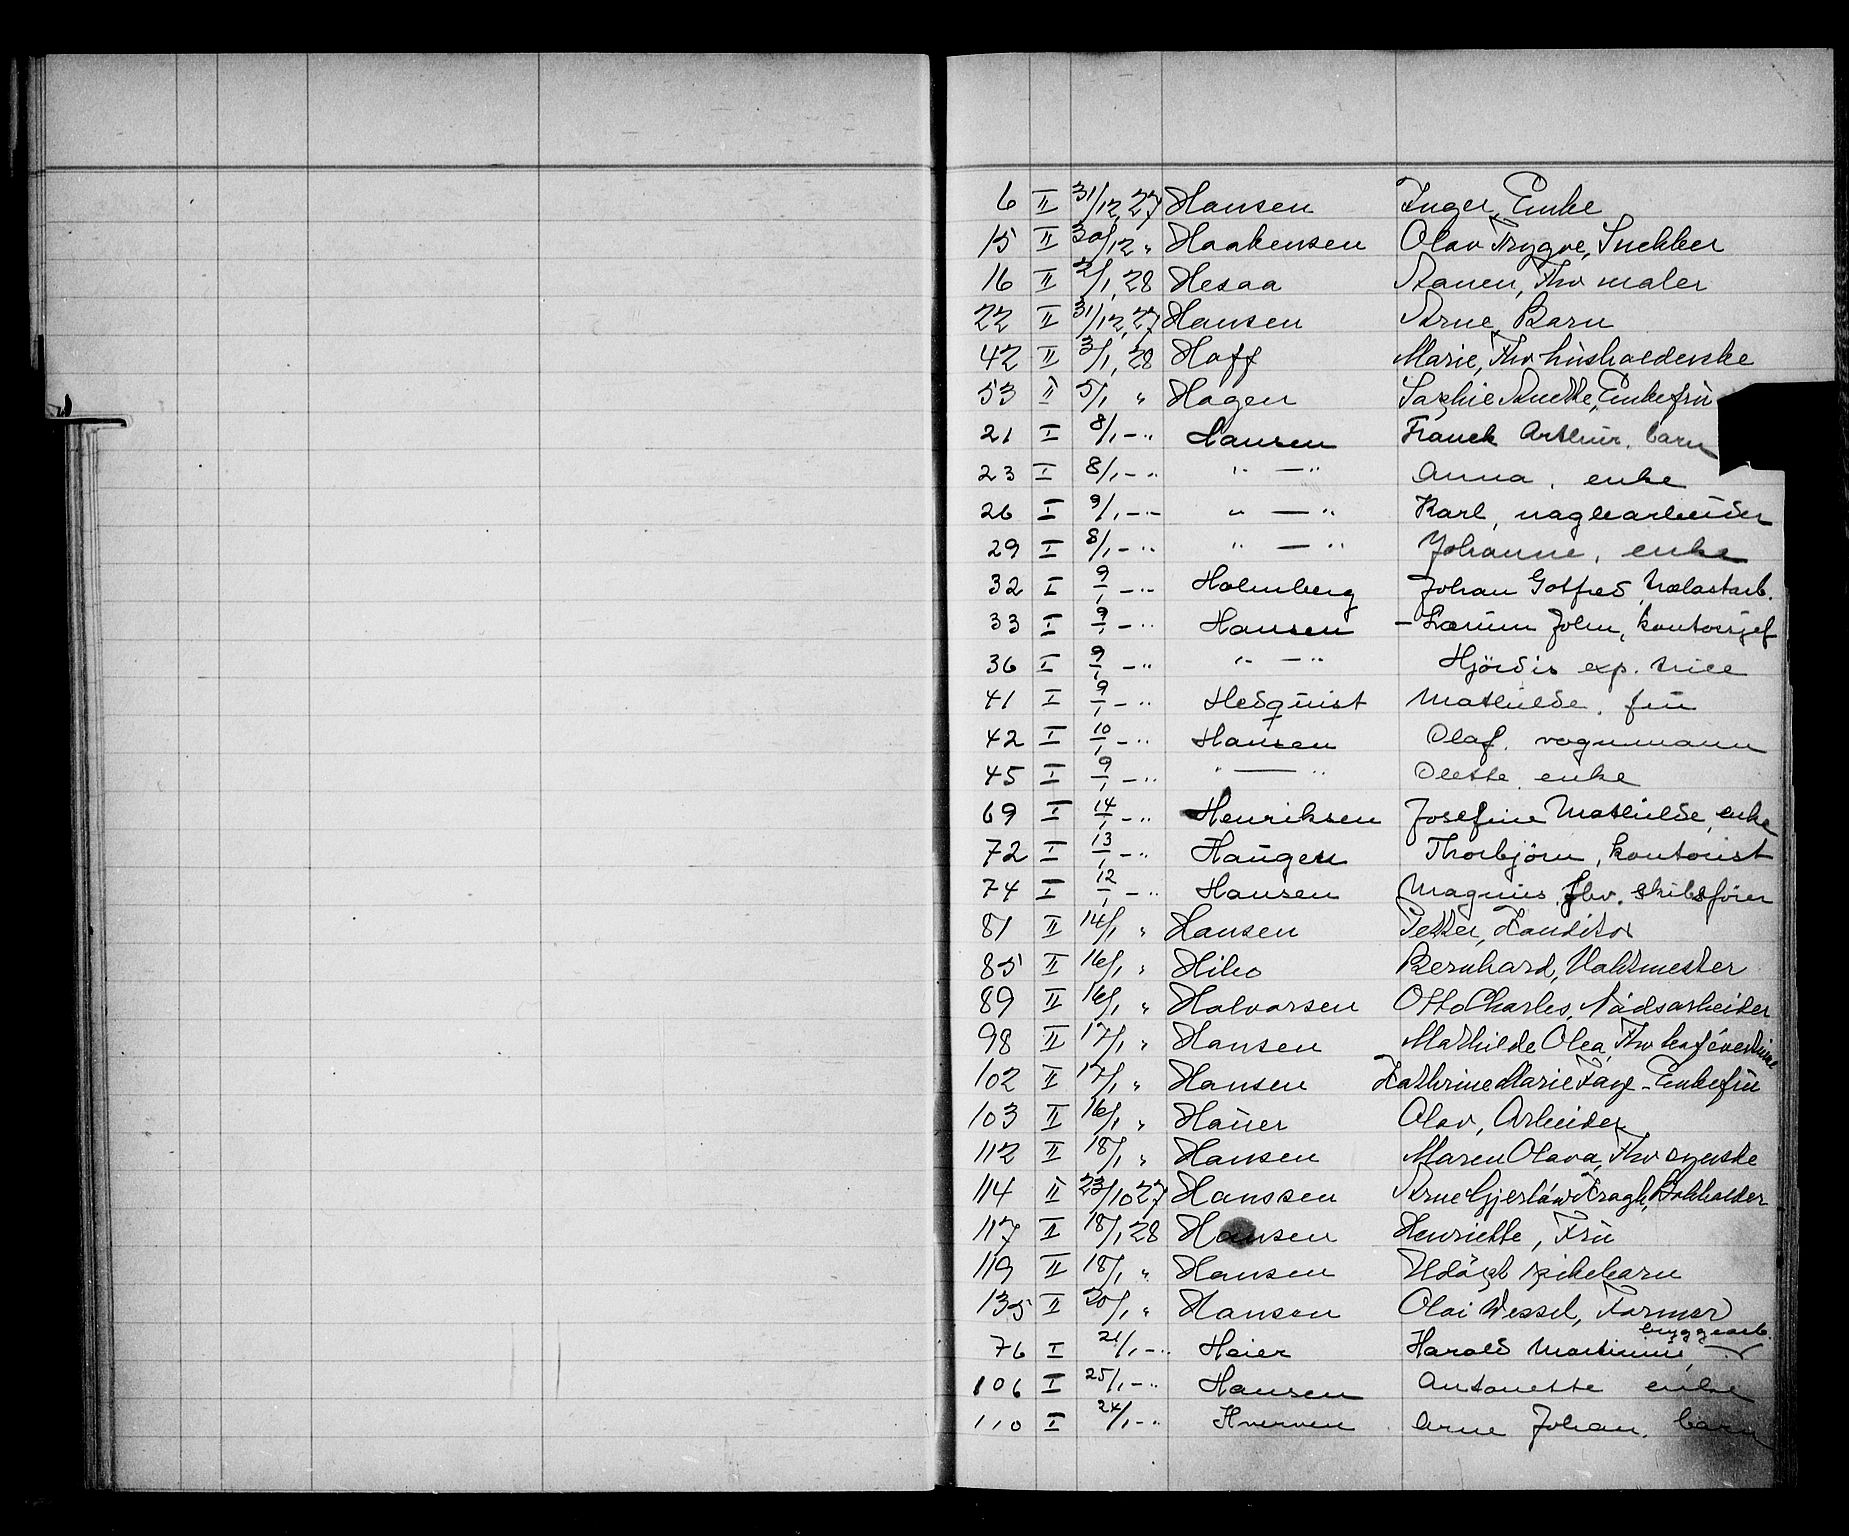 6 II 31/12 27 Hansen Inger, Enke
15 II 30/12 " Haakensen Olav Trygve, Snekker
16 II 2/1 28 Hesaa Aanen, Fhv maler
22 II 31/12 27 Hansen Arne, Barn
42 II 3/1 28 Hoff Marie, Fhv husholderske
53 II 5/1 " Hagen Sophie Anette, Enkefru
21 I 8/1 - " Hansen Franck Arthur. barn
23 I 8/1 - " " — " Anna. enke
26 I 9/1 - " " — " Karl, naglearbeider
29 I 8/1 - " " — " Johanne. enke
32 I 9/1 - " Holmberg Johan Gotfred
33 I 9/1 - " Hansen - Lærum John, kontorsjef
36 I 9/1 - " " — " Hjördis exp. trice
41 I 9/1 - " Hedquist Mathilde. fru
42 I 10/1 - " Hansen Olaf. vognmann
45 I 9/1 - " " — " Olette enke
69 I 14/1 - " Henriksen Josefine Mathilde, enke
72 I 13/1 - " Haugen Thorbjörn, kontorist
74 I 12/1 - " Hansen Magnus. fhv. skibsförer
81 II 14/1 " Hansen Petter, Konditor
85 II 16/1 " Hibo Bernhard, Vaktmester
89 II 16/1 " Halvorsen Otto Charles, Nödsarbeider
98 II 17/1 " Hansen Mathilde Olea, Fhv kafévertinne
102 II 17/1 " Hansen Kathrine Marie Faye - Enkefru
103 II 16/1 " Hauer Olav, Arbeider
112 II 18/1 " Hansen Maren Olava, Fhv syerske
114 II 23/10 27 Hanssen Arne Gjerløw Kragh, Bokholder
117 II 18/1 28 Hansen Henriette, Fru
119 II 18/1 " Hansen Udöpt pikebarn
135 II 20/1 " Hansen Olai Wessel, Farmer
76 I 21/1 - " Heier Harald Martinius, bryggearb.
106 I 25/1 - " Hansen Antonette enke
110 I 24/1 - " Hverven Arne Johan. barn